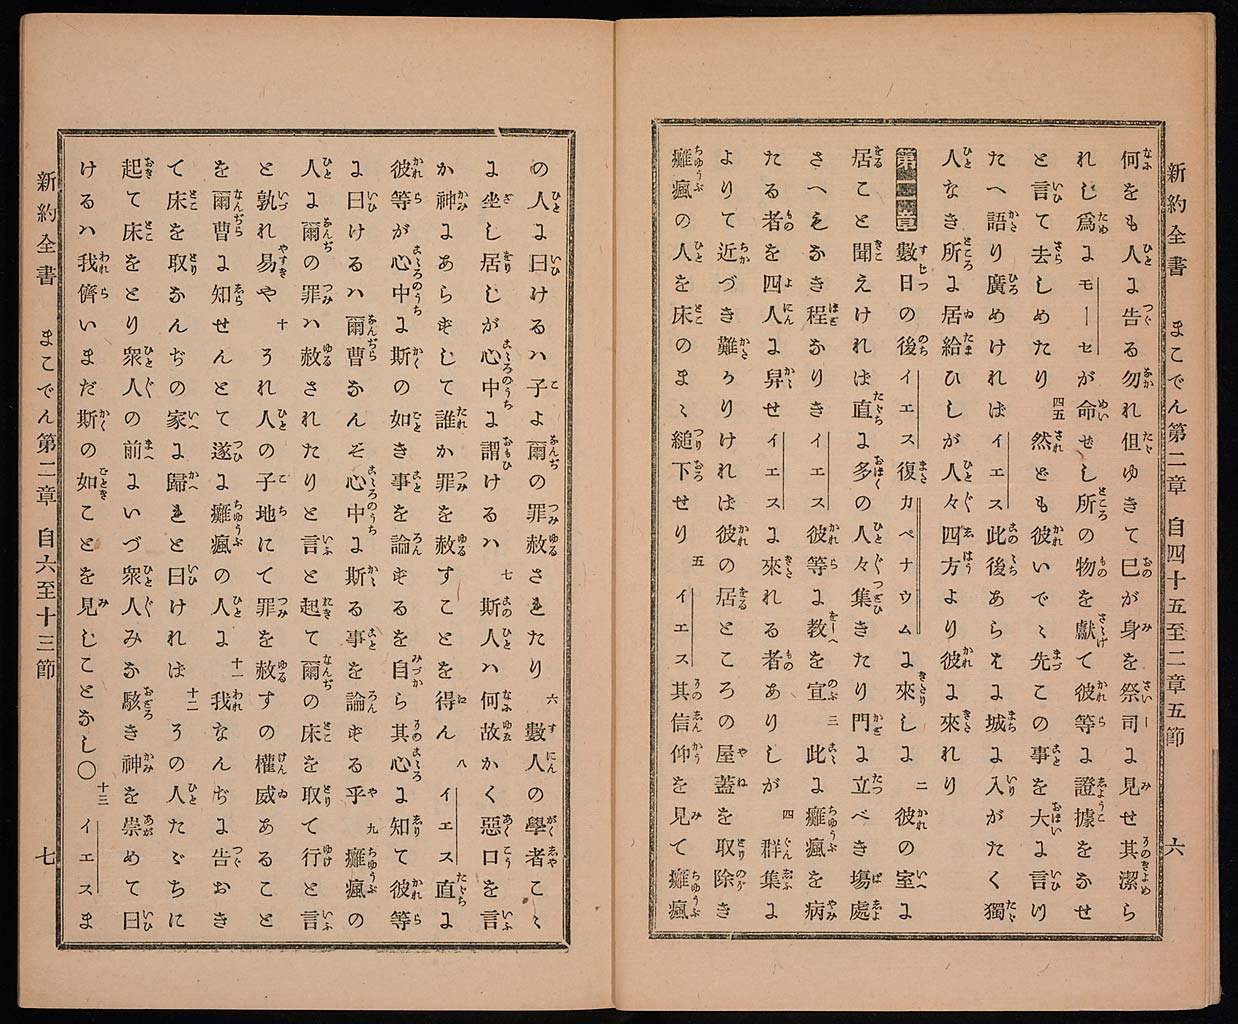 新約全書　まこでん第二章　自四十五至二章五節　六
何をも人ょ告る勿れ但ゆきて巳が身を祭司ょ見せ其潔ら
れし爲ょモーセが命せし所の物を獻て彼等ょ證據をなせ
と言て去しめたり 四五 然ども彼いでゝ先この事を大ょ言り
たへ語り廣めけれはイエス此後あらはょ城ょ入がたく獨
人なき所ょ居給ひしが人々四方より彼ょ來れり
第二章 數日の後イエス復カペナウムょ來しょ 二 彼の室ょ
居こと聞えけれは直ょ多の人々集きたり門ょ立べき塲處
さへもなき程なりきイエス彼等ょ教を宣 三 此ょ癱瘋を病
たる者を四人ょ舁せイエスょ來れる者ありしが 四 群集ょ
よりて近づき難かりければ彼の居ところの屋蓋を取除き
癱瘋の人を床のまゝ縋下せり 五 イエス其信仰を見て癱瘋
の人ょ曰けるハ子よ爾の罪赦されたり 六 數人の學者こゝ
ょ坐し居しが心中ょ謂けるハ 七 斯人ハ何故かく惡口を言
か神ょあらずして誰か罪を赦すことを得ん 八 イエス直ょ
彼等が心中ょ斯の如き事を論ずるを自ら其心ょ知て彼等
ょ曰けるハ爾曹なんぞ心中ょ斯る事を論ずる乎 九 癱瘋の
人ょ爾の罪ハ赦されたりと言と起て爾の床を取て行と言
と孰れ易や 十 それ人の子地にて罪を赦すの權威あること
を爾曹ょ知せんとて遂ょ癱瘋の人ょ 十一 我なんぢょ告おき
て床を取なんぢの家ょ歸れと曰ければ 十二 その人たゞちに
起て床をとり衆人の前ょいづ衆人みな駭き神を崇めて曰
けるハ我儕いまだ斯の如ことを見しことなし〇 十三 イエスま
新約全書　まこでん第二章　自六至十三節　七